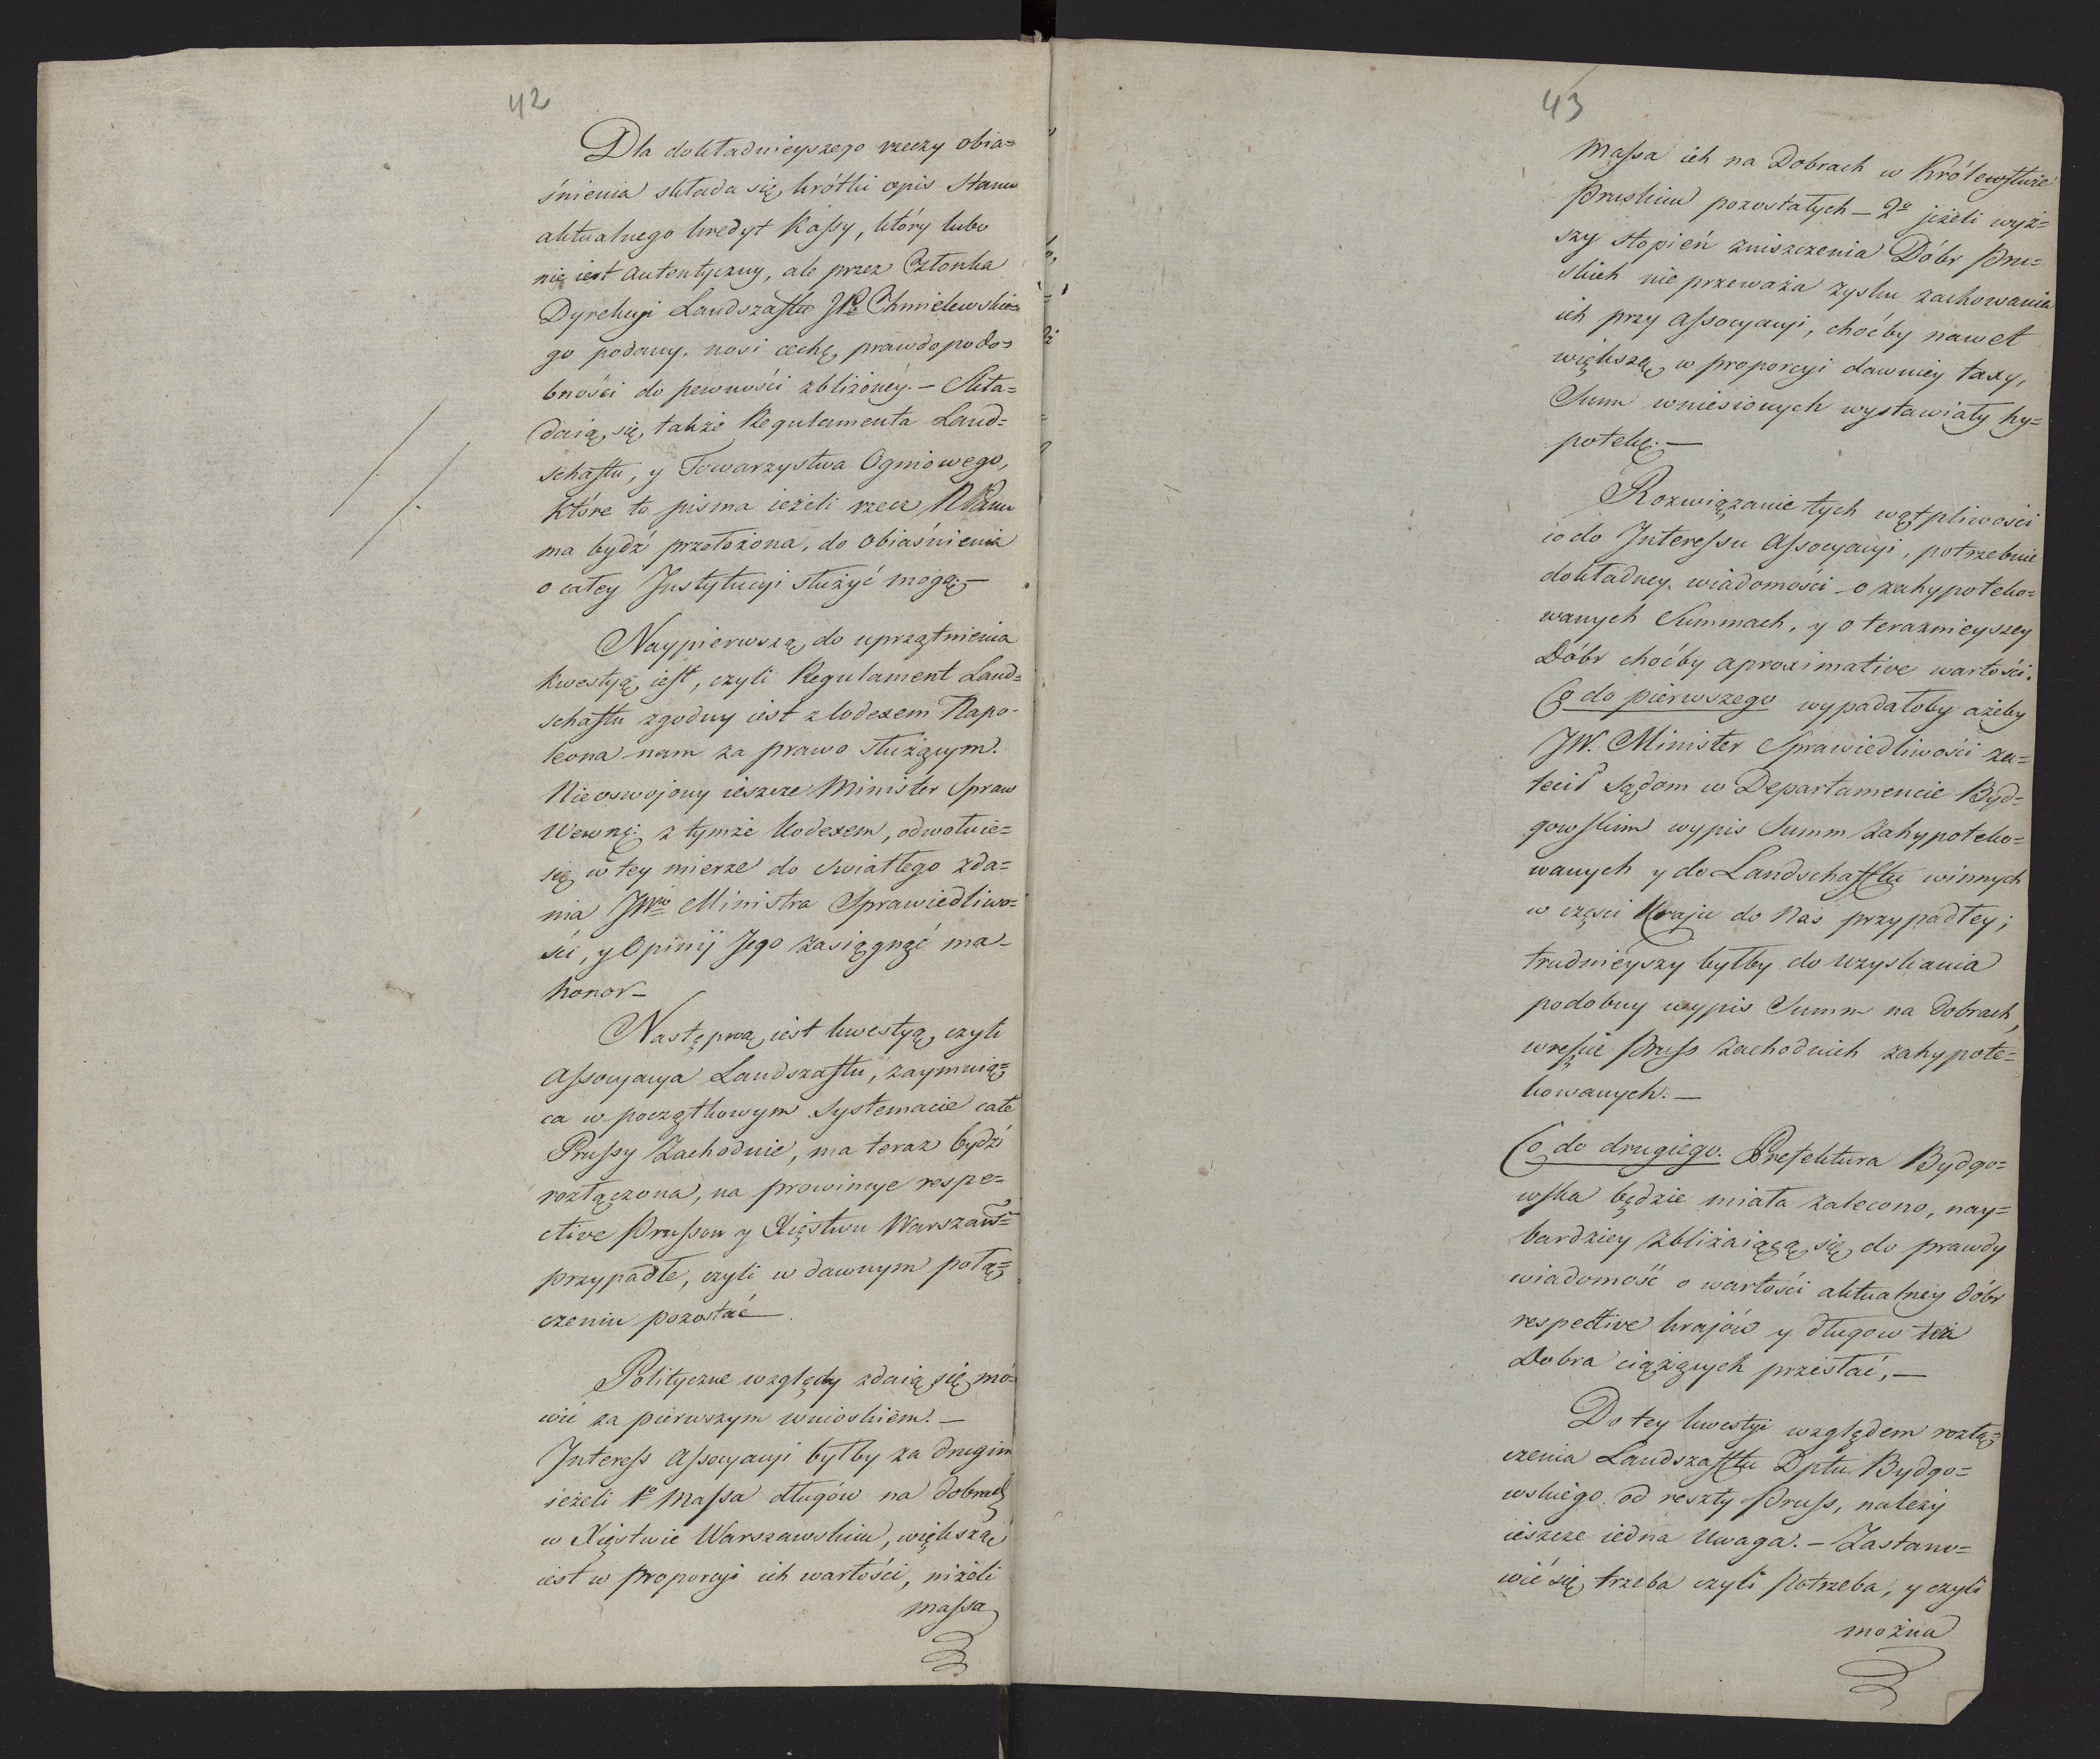 42
Dla dokładnieyszego rzeczy obia=
śnienia składa się, krótki opis Stanu
aktualnego kredyt Kassy, który lubo
nie iest Autentyczny, ale przez Członka
Dyrekcyi Landszaftu JP. Chmielewskie=
go podany, nosi cechę, prawdopodo=
bności do pewności zbliżonéy. – Skła=
daią się, także Regulamenta Land=
schaftu, y Towarzystwa Ogniowego,
które to pisma ieżeli rzecz NPanu
ma bydź przełożona, do obiaśnienia
o całey Instytucyi służyć mogą. –
Naypierwszą, do uprzątnienia
kwestyą, iest, czyli Regulament Land=
schaftu zgodny iest z Kodexem Napo-
leona nam za prawo służącym.
Nieoswojony ieszcze Minister Spraw
Wewnę: z tymże Kodexem, odwołuie=
się w tey mierze do światłego zda=
nia JWgo Ministra Sprawiedliwo=
ści, y Opinij Jego zasięgnąć ma-
honor –
Następną, iest kwestyą, czyli
Assocyacya Landszaftu, zaymuią=
ca w początkowym Systemacie całe
Prussy Zachodnie, ma teraz bydź
rozłączona, na prowincye respe=
ctive Prussom y Xięstwu Warszaws=
przypadłe, czyli w dawnym połą=
czeniu pozostać
Polityczne względy zdaią się, mó=
wić za pierwszym wnioskiem. –
Interess Assocyacyi byłby za drugim
ieżeli 1o Massa długów na dobrach
w Xięstwie Warszawskim, większą
iest w proporcyi ich wartości, niżeli
massa
43
Massa ich na Dobrach w Królewstwie
Pruskim pozostałych – 2o jeżeli wyż=
szy stopień zniszczenia Dóbr Pru=
skich nie przeważa zysku zachowania
ich przy Assocyacyi, choćby nawet
większą, w proporcyi dawniey taxy,
Summ wniesionych wystawiały hy=
potekę. –
Rozwiązanie tych wątpliwości
co do Interessu Assocyacyi, potrzebuie
dokładney wiadomości o zahypoteko=
wanych Summach, y o teraznieyszey
Dóbr choćby aproximative wartości.
Co do pierwszego wypadałoby ażeby
JW. Minister Sprawiedliwości za=
lecił Sądom w Departamencie Byd=
gowskim wypis Summ zahypoteko=
wanych y do Landschafftu winnych
w części Kraju do Nas przypadłey;
trudnieyszy byłby do uzyskania
podobny wypis Summ na Dobrach,
wreście Pruss Zachodnich zahypote=
kowanych. –
Co do drugiego. Prefektura Bydgo=
wska będzie miała zalecono, nay=
bardziey zbliżaiącą się, do prawdy
wiadomość o wartości aktualney Dóbr
respective krajów y długow też
Dobra ciążących przesłać, –
Do tey kwestyi względem rozłą=
czenia Landszafftu Dptu Bydgo=
wskiego od reszty Pruss, należy
ieszcze iedna Uwaga. – Zastano=
wić się, trzeba czyli potrzeba, y czyli
można